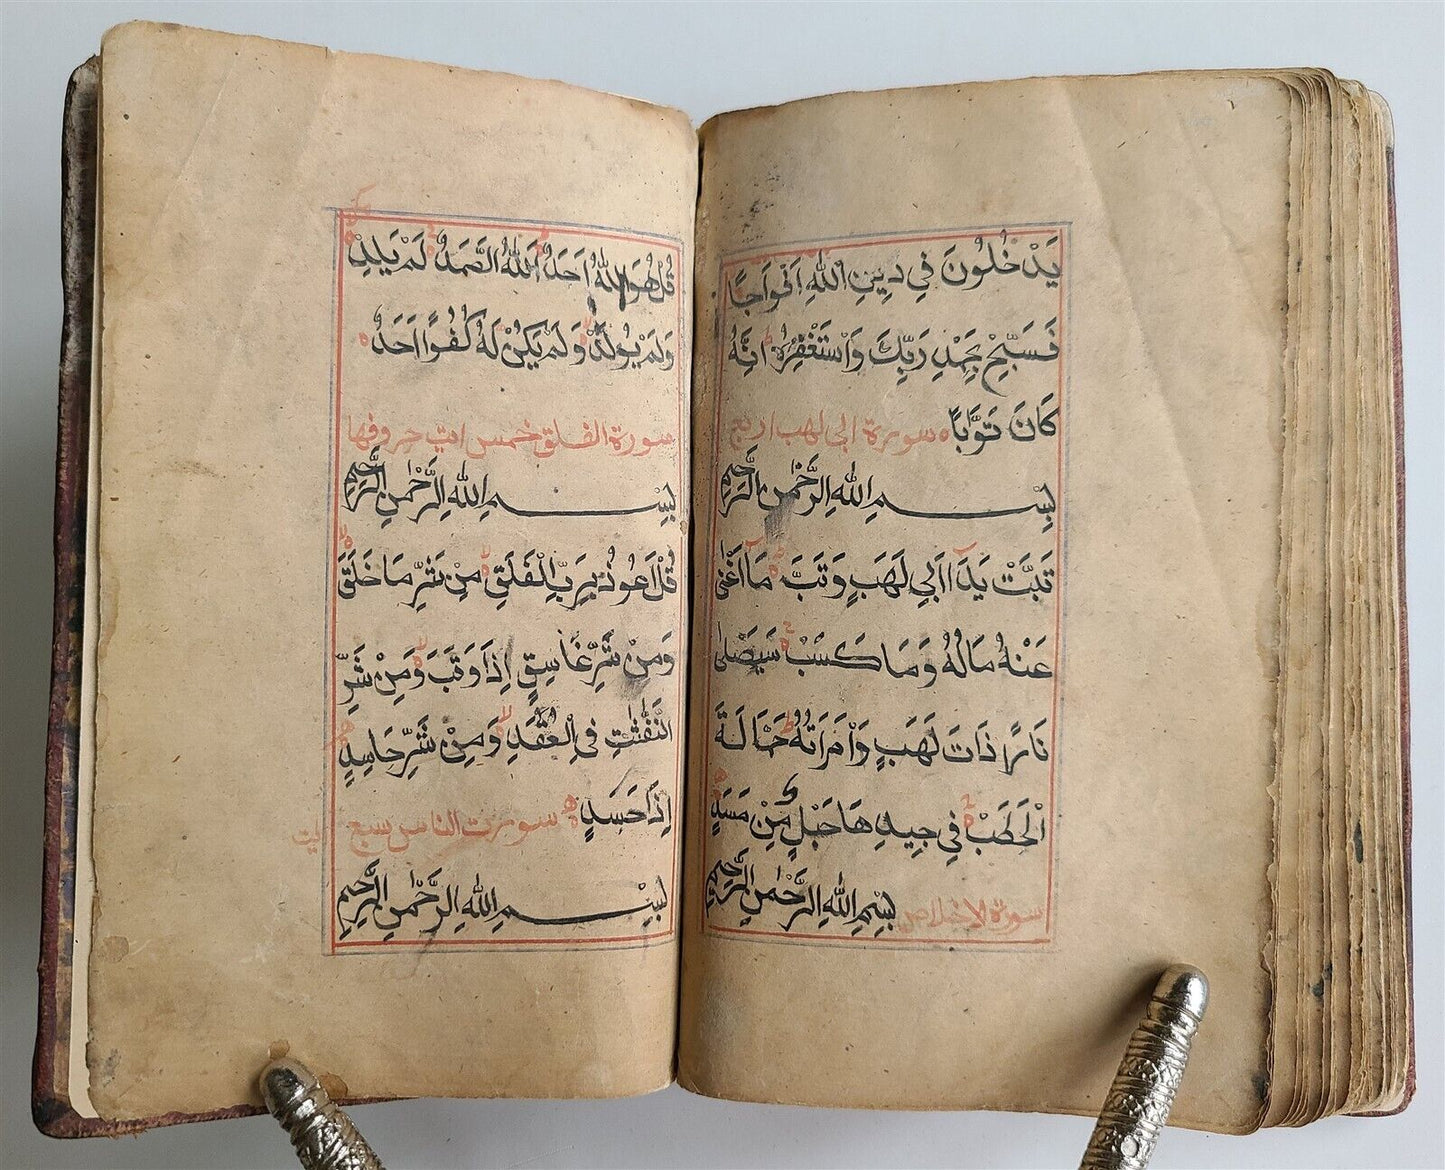 يَدْخُلُونَ فِي دِينِ اللهِ اَفْوَاجًا
فَسَبِّحْ بِحَمْدِ رَبِّكَ وَاسْتَغْفِرْهُ اِنَّهُ
كَانَ تَوَّابًا سورة ابي لهب اربع
بِسْمِ اللهِ الرَّحْمٰنِ الرَّحِيْمِ
تَبَّتْ يَدَا اَبِي لَهَبٍ وَتَبَّ مَا اَغْنٰى
عَنْهُ مَالُهُ وَمَا كَسَبْ سَيَصْلٰى
نَارًا ذَاتَ لَهَبٍ وَامْرَاَتُهُ حَمَّالَةَ
الْحَطَبْ فِي جِيدِهَا حَبْلٌ مِنْ مَسَدٍ
سورة الاخلاص بِسْمِ اللهِ الرَّحْمٰنِ الرَّحِيْمِ
قُلْ هُوَ اللهُ اَحَدٌ اَللهُ الصَّمَدُ لَمْ يَلِدْ
وَلَمْ يُولَدْ وَلَمْ يَكُنْ لَهُ كُفُوًا اَحَدٌ
سورة الفلق خمس ايت حروفها
بِسْمِ اللهِ الرَّحْمٰنِ الرَّحِيْمِ
قُلْ اَعُوْذُ بِرَبِّ الْفَلَقِ مِنْ شَرِّ مَا خَلَقَ
وَمِنْ شَرِّ غَاسِقٍ اِذَا وَقَبَ وَمِنْ شَرِّ
النَّفّٰثٰتِ فِي الْعُقَدِ وَمِنْ شَرِّ حَاسِدٍ
اِذَا حَسَدٍ سورت الناس سبع ايت
بِسْمِ اللهِ الرَّحْمٰنِ الرَّحِيْمِ